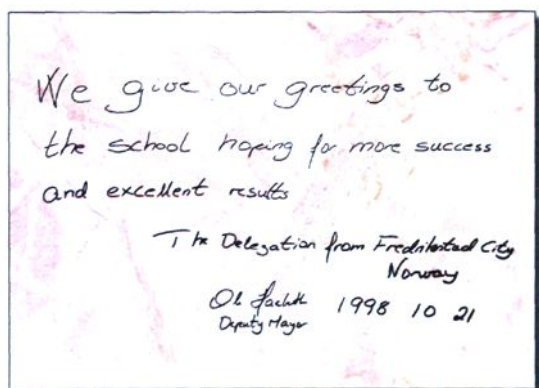 We give our greetings to
the school hoping for more success
and excellent results
The Delegation from Fredrikstad City
Norway
1998 10 21
Deputy Mayor